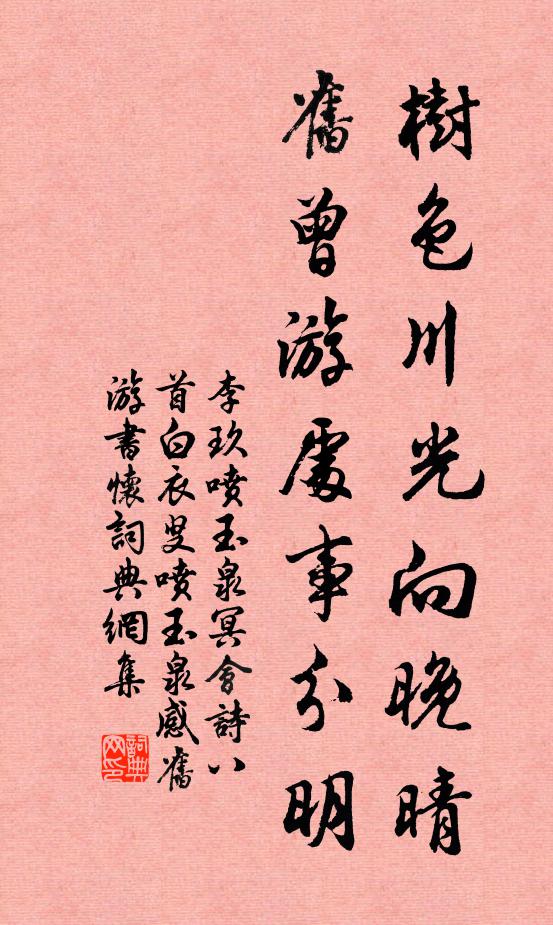 樹色川光向晚晴
舊曾游處事分明
李玖噴玉泉冥會詩八
首白衣叟噴玉泉感舊
游書懷詞典網集
詞典
网印